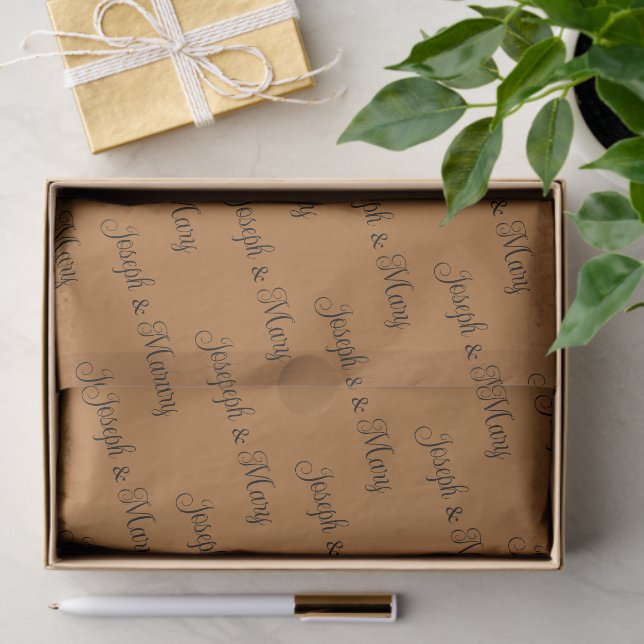 Mary
Joseph & Mary
Mary
Joseph & Mary
Joseph & Mary
Mary
Joseph & Marury
Joseph & Mary
Joseph & Mary
Josepeph & Mary
Joseph & & Mary
Joseph & MMary
Joseph & Mary
Joseph &
Joseph & Mary
Joseph & M